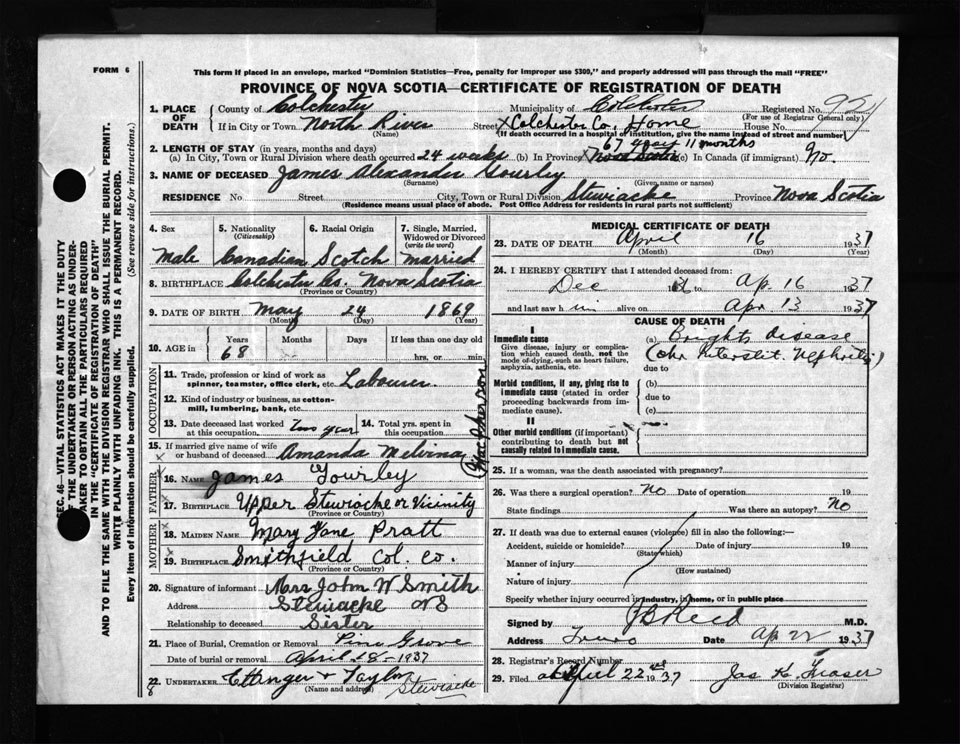 FORM 6
This form if placed in an envelope, marked "Dominion Statistics—Free, penalty for improper use $300," and properly addressed will pass through the mail "FREE"
PROVINCE OF NOVA SCOTIA—CERTIFICATE OF REGISTRATION OF DEATH
1. PLACE OF DEATH County of Colchester Municipality of Colchester Registered No. 924
(For use of Registrar General only)
If in City or Town North River Street Colchester Co. Home House No.
(Name) (If death occurred in a hospital or institution, give the name instead of street and number)
67 years 11 months
2. LENGTH OF STAY (in years, months and days)
(a) In City, Town or Rural Division where death occurred 24 weeks (b) In Province Nova Scotia (c) In Canada (if immigrant) No.
3. NAME OF DECEASED James Alexander Gourley
(Surname) (Given name or names)
RESIDENCE No. Street City, Town or Rural Division Stewiacke Province Nova Scotia
(Residence means usual place of abode. Post Office Address for residents in rural parts not sufficient)
4. Sex 5. Nationality (Citizenship) 6. Racial Origin 7. Single, Married, Widowed or Divorced (write the word)
Male Canadian Scotch married
8. BIRTHPLACE Colchester Co. Nova Scotia
(Province or Country)
9. DATE OF BIRTH May 24 1869
(Month) (Day) (Year)
10. AGE in Years Months Days If less than one day old
68 hrs. or min.
OCCUPATION
11. Trade, profession or kind of work as spinner, teamster, office clerk, etc. Labourer.
12. Kind of industry or business, as cotton-mill, lumbering, bank, etc.
13. Date deceased last worked at this occupation Two year 14. Total yrs. spent in this occupation
15. If married give name of wife or husband of deceased Amanda Melvina (MacPherson)
FATHER
16. NAME James Gourley
17. BIRTHPLACE Upper Stewiacke or Vicinity
(Province or Country)
MOTHER
18. MAIDEN NAME Mary Jane Pratt
19. BIRTHPLACE Smithfield Col. Co.
(Province or Country)
20. Signature of informant Mrs John W Smith
Address Stewiacke NS
Relationship to deceased Sister
21. Place of Burial, Cremation or Removal Pine Grove
Date of burial or removal April 18 - 1937
22. UNDERTAKER Ettinger + Taylor Stewiacke
(Name and address)
MEDICAL CERTIFICATE OF DEATH
23. DATE OF DEATH April 16 1937
(Month) (Day) (Year)
24. I HEREBY CERTIFY that I attended deceased from:
Dec 1936 to Ap. 16 1937
and last saw h im alive on Apr 13 1937
CAUSE OF DEATH
I
Immediate cause
Give disease, injury or complication which caused death, not the mode of dying, such as heart failure, asphyxia, asthenia, etc.
(a) Bright's Disease
(Chr Interstit. Nephritis)
due to
Morbid conditions, if any, giving rise to immediate cause (stated in order proceeding backwards from immediate cause).
(b)
due to
(c)
II
Other morbid conditions (if important) contributing to death but not causally related to immediate cause.
25. If a woman, was the death associated with pregnancy?
26. Was there a surgical operation? No Date of operation 19
State findings Was there an autopsy? No
27. If death was due to external causes (violence) fill in also the following:—
Accident, suicide or homicide? Date of injury 19
(State which)
Manner of injury
(How sustained)
Nature of injury
Specify whether injury occurred in industry, in home, or in public place
Signed by Reed M.D.
Address Truro Date Ap 22 1937
28. Registrar's Record Number
29. Filed April 22nd 1937 Jas K. Fraser
(Division Registrar)
SEC. 46—VITAL STATISTICS ACT MAKES IT THE DUTY
OF THE UNDERTAKER OR PERSON ACTING AS UNDER-
TAKER TO OBTAIN ALL THE PARTICULARS REQUIRED
IN THE "CERTIFICATE OF REGISTRATION OF DEATH"
AND TO FILE THE SAME WITH THE DIVISION REGISTRAR WHO SHALL ISSUE THE BURIAL PERMIT.
WRITE PLAINLY WITH UNFADING INK. THIS IS A PERMANENT RECORD.
Every item of information should be carefully supplied. (See reverse side for instructions.)